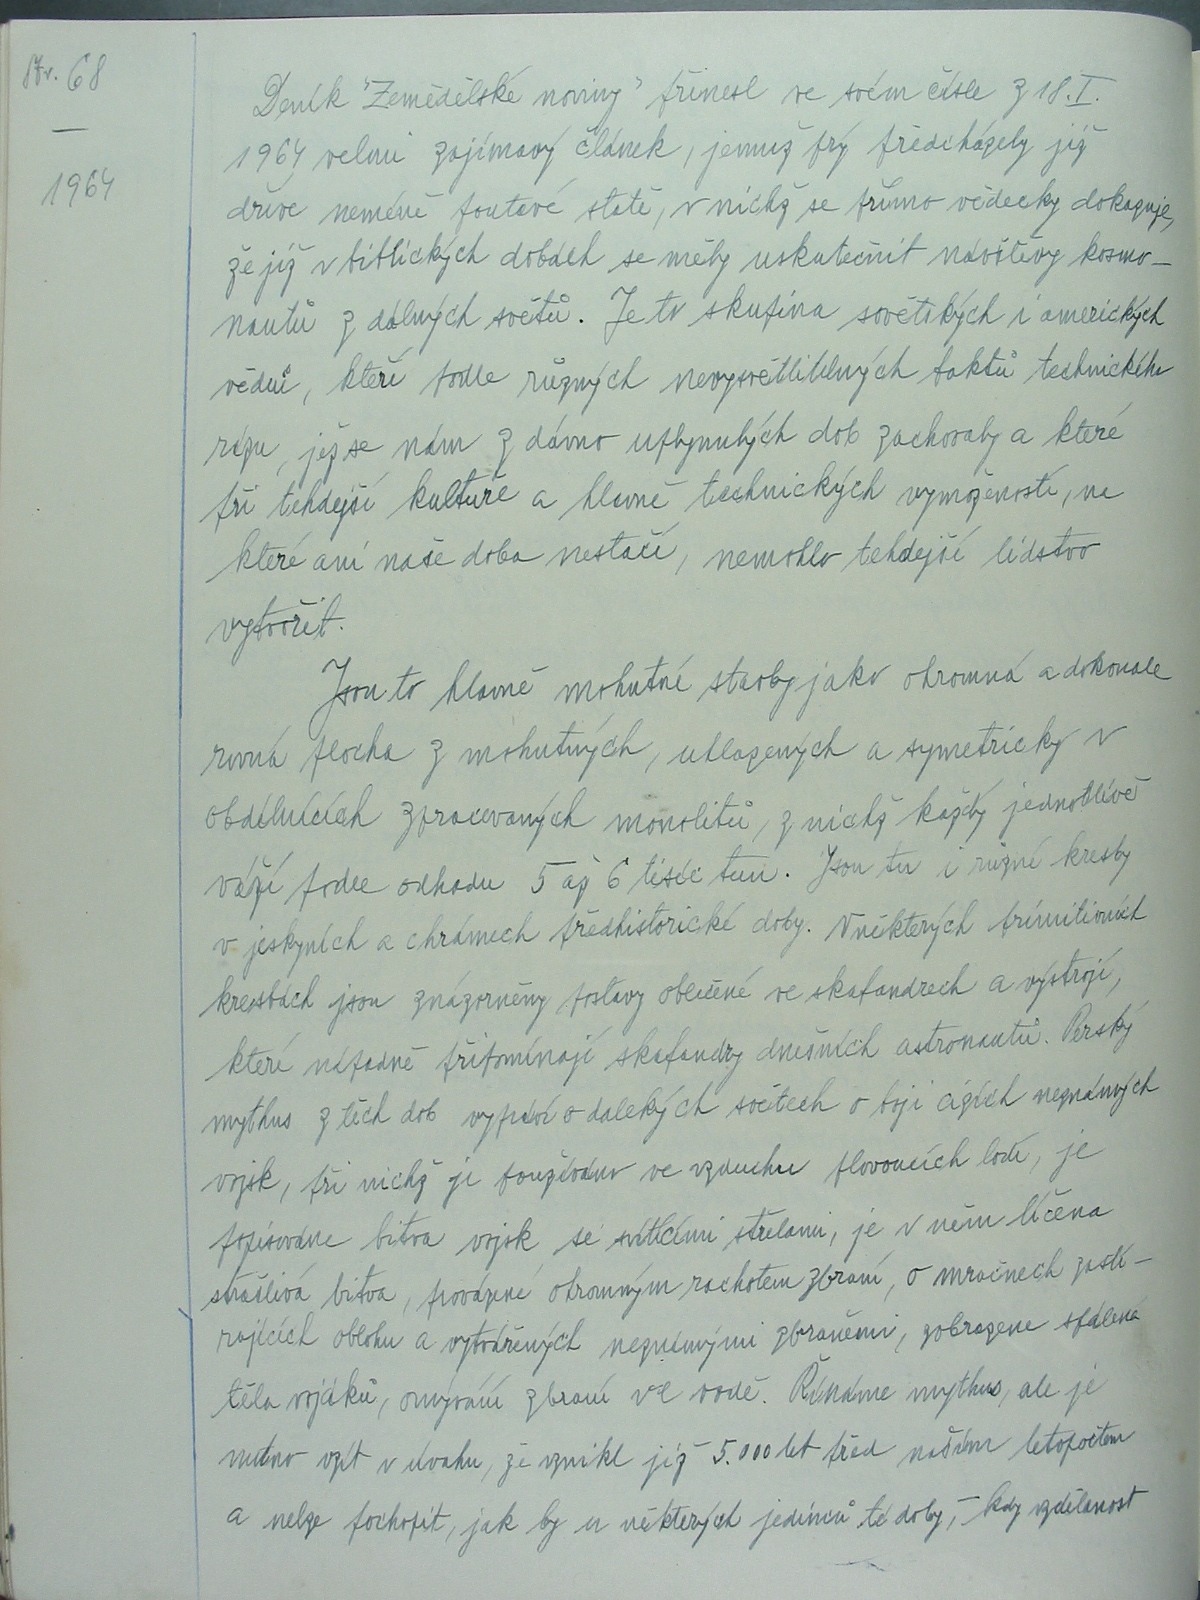 Str. 68
—
1964
Deník "Zemědělské noviny" přinesl ve svém čísle z 18.I.
1964 velmi zajímavý článek, jemuž prý předcházely již
dříve neméně poutavé statě, v nichž se přímo vědecky dokazuje,
že již v biblických dobách se měly uskutečnit návštěvy kosmo-
nautů z dálných světů. Je to skupina sovětských i amerických
vědců, kteří podle různých nevysvětlitelných faktů technického
rázu, jež se nám z dávno uplynulých dob zachovaly a které
při tehdejší kultuře a hlavně technických vymožeností, na
které ani naše doba nestačí, nemohlo tehdejší lidstvo
vytvořit.
Jsou to hlavně mohutné stavby jako ohromná a dokonale
rovná plocha z mohutných, uhlazených a symetricky v
obdélnících zpracovaných monolitů, z nichž každý jednotlivě
váží podle odhadu 5 až 6 tisíc tun. Jsou tu i různé kresby
v jeskyních a chrámech předhistorické doby. V některých primitivních
kresbách jsou znázorněny postavy oblečené ve skafandrech a výstroji,
které nápadně připomínají skafandry dnešních astronautů. Perský
mythus z těch dob vypráví o dalekých světech o boji cizích neznámých
vojsk, při nichž je používáno ve vzduchu plovoucích lodí, je
popisována bitva vojsk se svítícími střelami, je v něm líčena
strašlivá bitva, provázená ohromným rachotem zbraní, o mračnech zastí-
rajících oblohu a vytvářených neznámými zbraněmi, zobrazena spálená
těla vojáků, omývání zbraní ve vodě. Říkáme mythus, ale je
nutno vzít v úvahu, že vznikl již 5.000 let před naším letopočtem
a nelze pochopit, jak by u některých jedinců té doby, – kdy vzdělanost